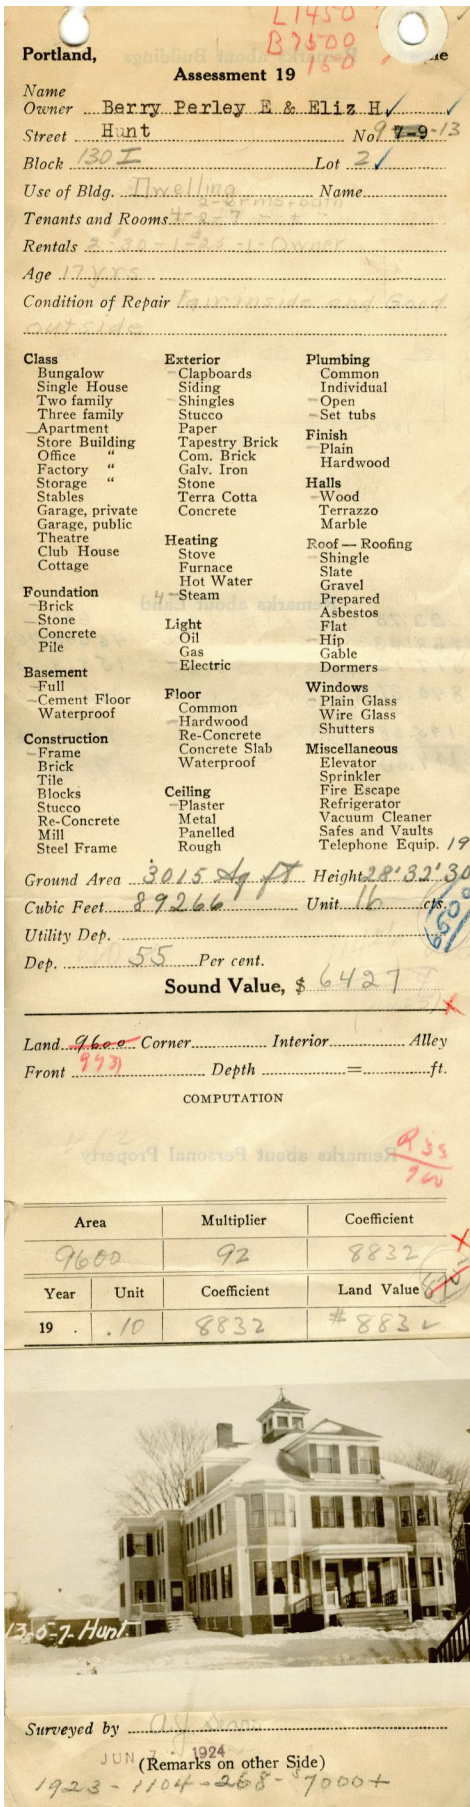 L1450
B7500
150
Portland,
Assessment 19
Name
Owner Berry Perley E & Eliz H
Street Hunt No 9 7-9-13
Block 130 I Lot 2
Use of Bldg. Dwelling Name
2-6 rms+bath
Tenants and Rooms
Rentals 2-30-1-25-1-Owner
Age 17 yrs
Condition of Repair Fair inside and Good
outside
Class
Bungalow
Single House
Two family
Three family
Apartment
Store Building
Office "
Factory "
Storage "
Stables
Garage, private
Garage, public
Theatre
Club House
Cottage
Foundation
Brick
Stone
Concrete
Pile
Basement
Full
Cement Floor
Waterproof
Construction
Frame
Brick
Tile
Blocks
Stucco
Re-Concrete
Mill
Steel Frame
Exterior
Clapboards
Siding
Shingles
Stucco
Paper
Tapestry Brick
Com. Brick
Galv. Iron
Stone
Terra Cotta
Concrete
Heating
Stove
Furnace
Hot Water
4 Steam
Light
Oil
Gas
Electric
Floor
Common
Hardwood
Re-Concrete
Concrete Slab
Waterproof
Ceiling
Plaster
Metal
Panelled
Rough
Plumbing
Common
Individual
Open
Set tubs
Finish
Plain
Hardwood
Halls
Wood
Terrazzo
Marble
Roof — Roofing
Shingle
Slate
Gravel
Prepared
Asbestos
Flat
Hip
Gable
Dormers
Windows
Plain Glass
Wire Glass
Shutters
Miscellaneous
Elevator
Sprinkler
Fire Escape
Refrigerator
Vacuum Cleaner
Safes and Vaults
Telephone Equip. 19
Ground Area 3015 Sq ft Height 28' 32' 30
Cubic Feet 89266 Unit 16 cts.
Utility Dep.
Dep. 55 Per cent.
Sound Value, $ 6427
Land 9600 Corner Interior Alley
9931
Front Depth = ft.
COMPUTATION
Area Multiplier Coefficient
9600 92 8832
Year Unit Coefficient Land Value
19 . .10 8832 # 883
13-5-7- Hunt.
Surveyed by
JUN 7 - 1924
(Remarks on other Side)
1923-1104-268-$7000+